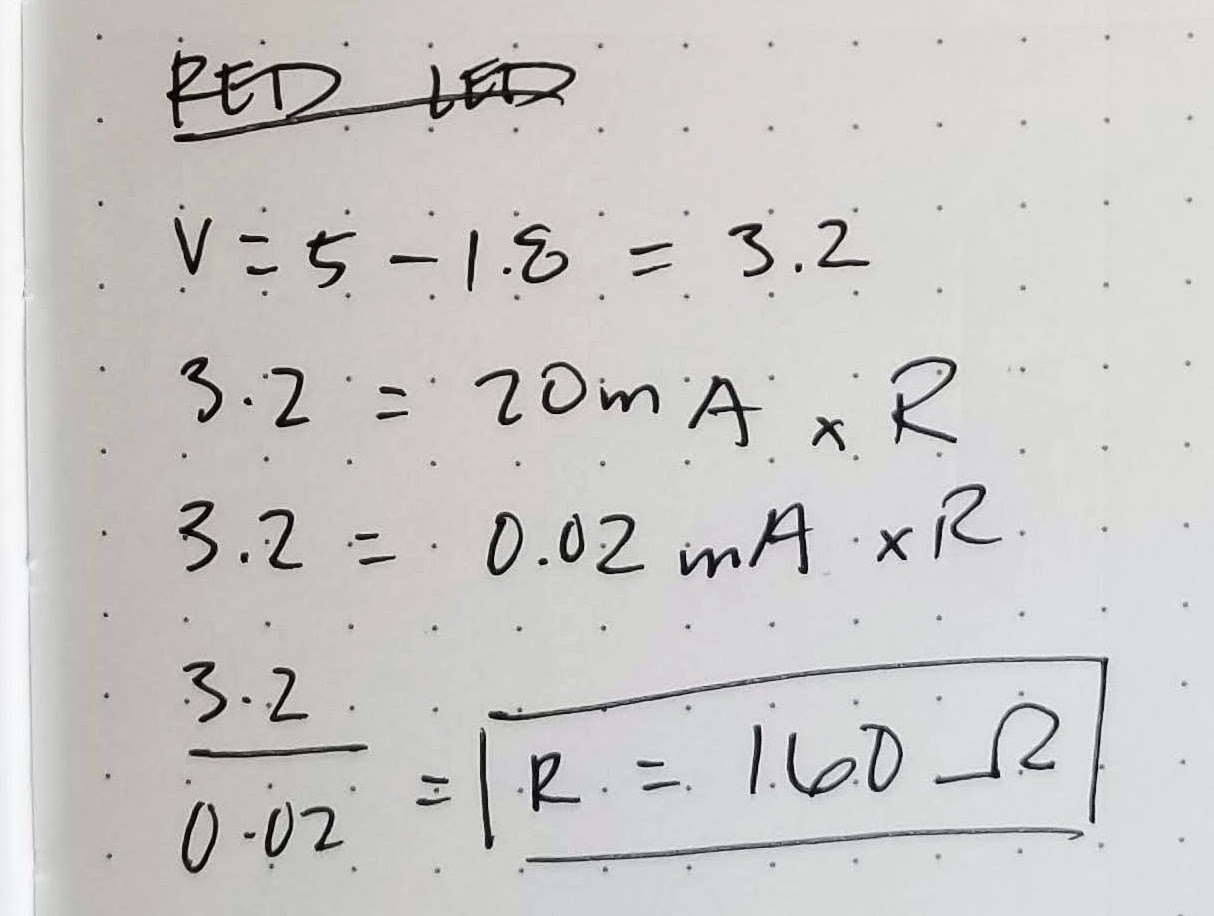 RED LED
V = 5 - 1.8 = 3.2
3.2 = 20mA x R
3.2 = 0.02 mA x R
3.2
0.02
= R = 160 Ω